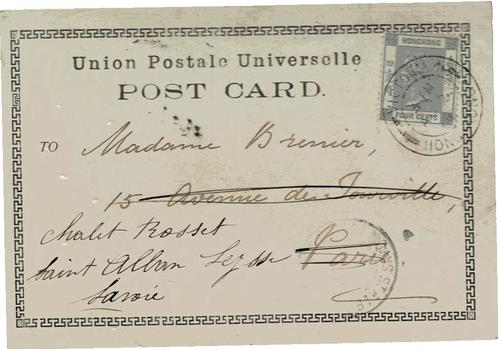 HONGKONG
FOUR CENTS
Union Postale Universelle
POST CARD.
TO Madame Brenier,
15 Avenue de Tourville,
Chalet Rosset
Saint Alban Leysse Paris
Savoie